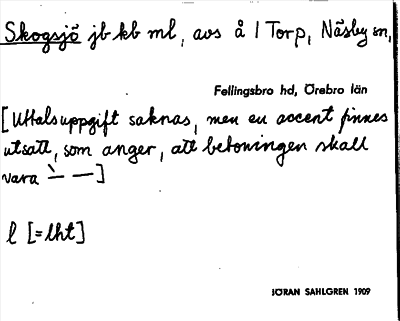 Skogsjö jb kb ml, avs å 1 Torp, Näsby sn,
Fellingsbro hd, Örebro län
[Uttalsuppgift saknas, men en accent finnes
utsatt, som anger, att betoningen skall
vara `– –]
l [=lht]
JÖRAN SAHLGREN 1909